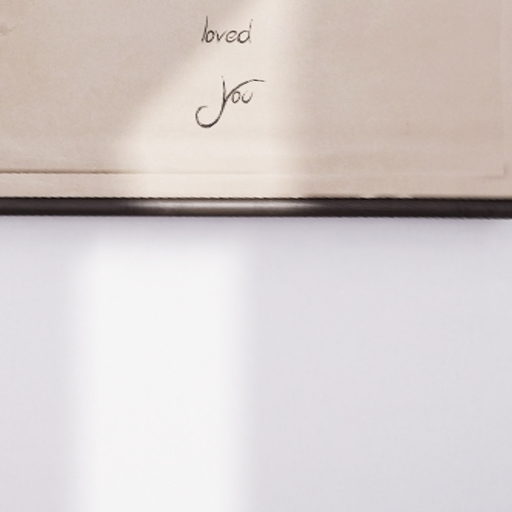 loved
you